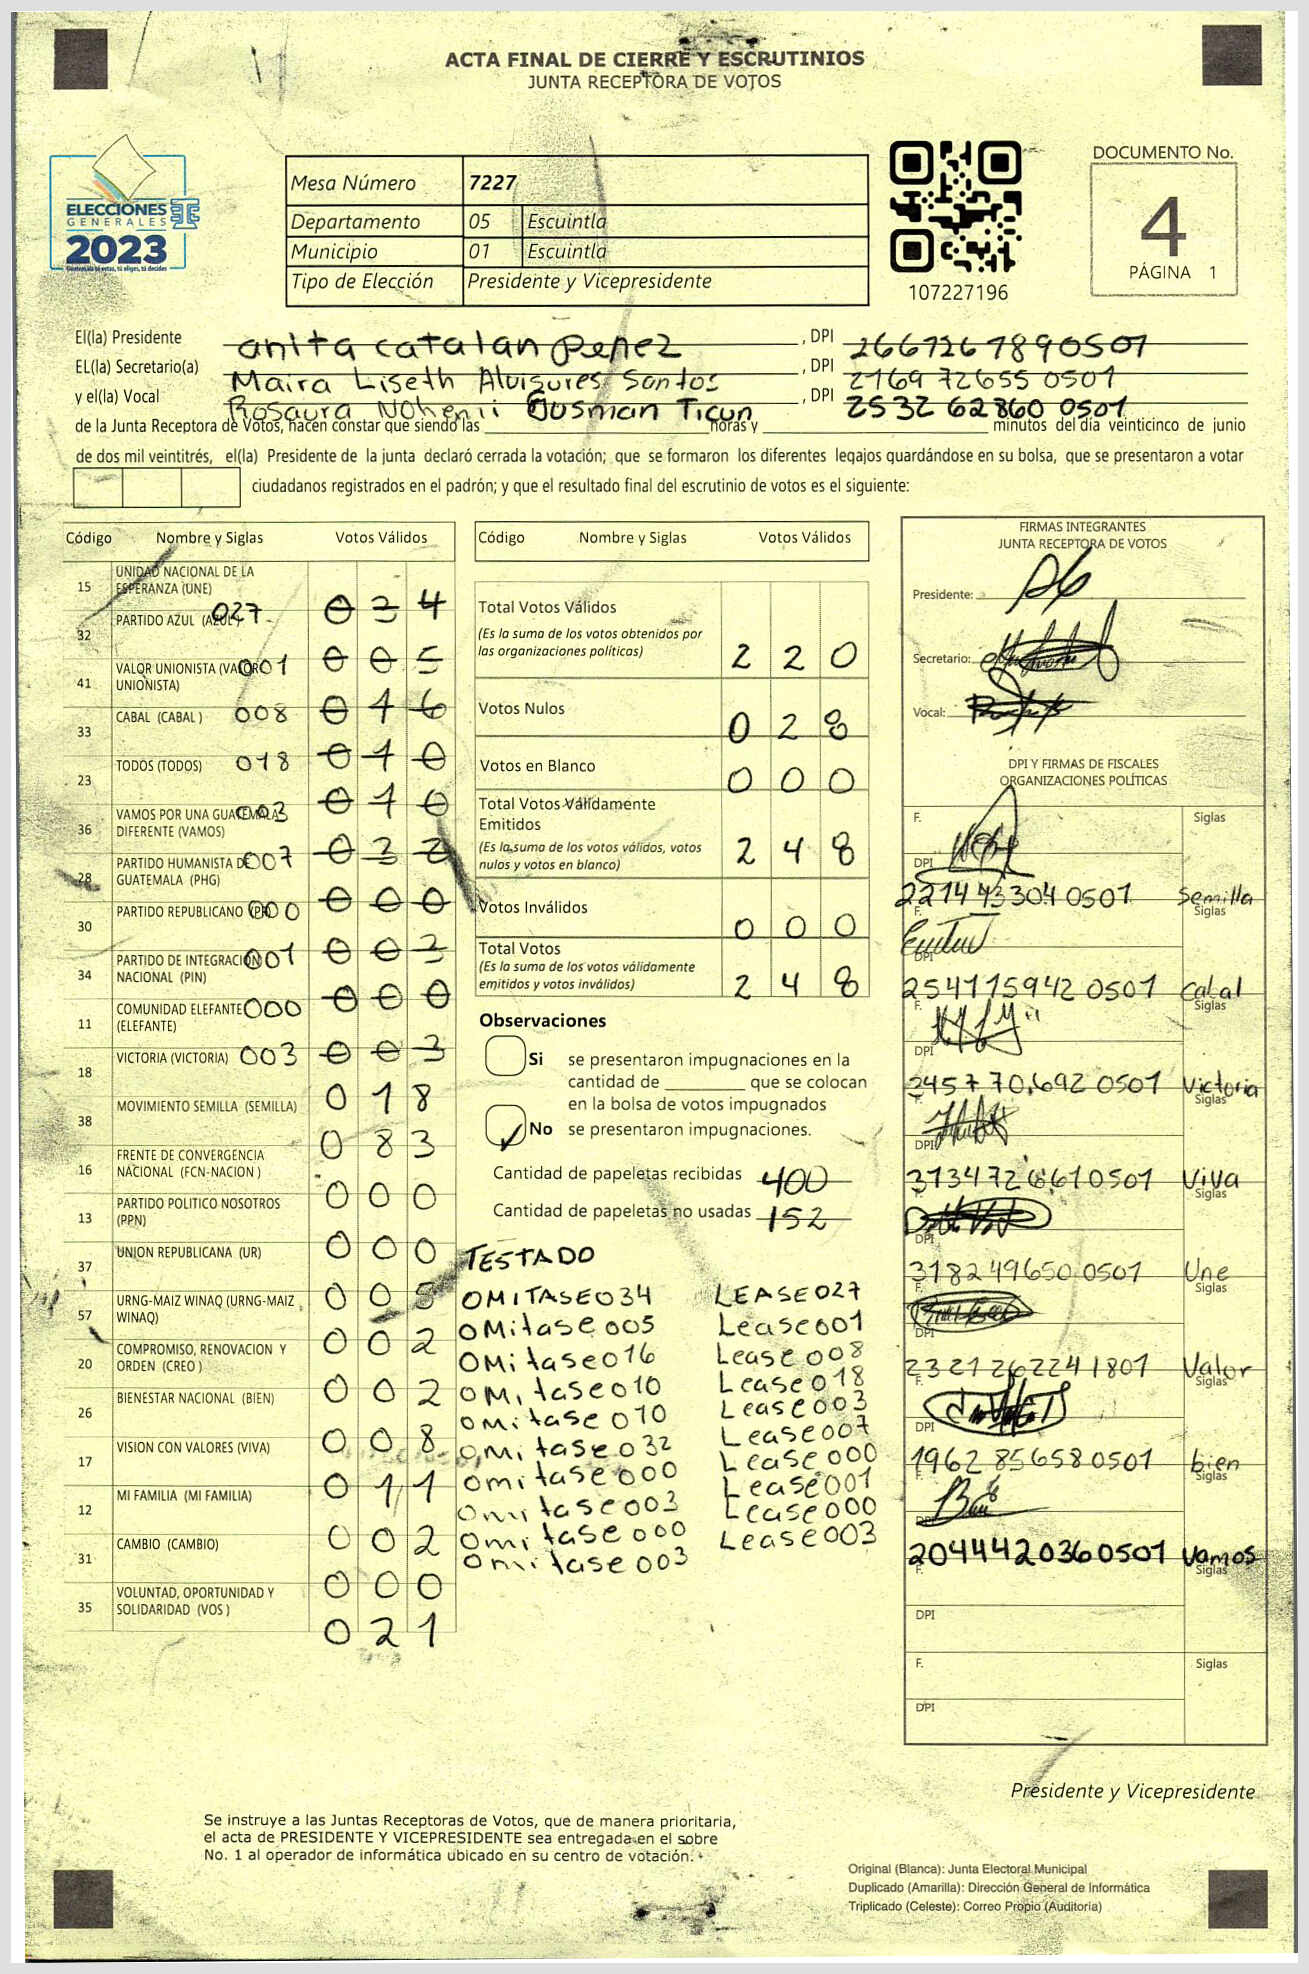 ACTA FINAL DE CIERRE Y ESCRUTINIOS
JUNTA RECEPTORA DE VOTOS
ELECCIONES
GENERALES
2023
Guatemala tú votas, tú eliges, tú decides
Mesa Número 7227
Departamento 05 Escuintla
Municipio 01 Escuintla
Tipo de Elección Presidente y Vicepresidente
107227196
DOCUMENTO No.
4
PÁGINA 1
El(la) Presidente anita catalan perez, DPI 2667267890501
EL(la) Secretario(a) Maira Liseth Alvisures Santos, DPI 2169 72655 0501
y el(la) Vocal Rosaura Nohemi Gusman Ticun, DPI 2532 62860 0501
de la Junta Receptora de Votos, hacen constar que siendo las horas y minutos del día veinticinco de junio
de dos mil veintitrés, el(la) Presidente de la junta declaró cerrada la votación; que se formaron los diferentes legajos guardándose en su bolsa, que se presentaron a votar
ciudadanos registrados en el padrón; y que el resultado final del escrutinio de votos es el siguiente:
Código Nombre y Siglas Votos Válidos
15 UNIDAD NACIONAL DE LA ESPERANZA (UNE) 027 034
32 PARTIDO AZUL (AZUL) 005
41 VALOR UNIONISTA (VALOR UNIONISTA) 001 016
33 CABAL (CABAL ) 008 010
23 TODOS (TODOS) 018 010
36 VAMOS POR UNA GUATEMALA DIFERENTE (VAMOS) 003 032
28 PARTIDO HUMANISTA DE GUATEMALA (PHG) 007 000
30 PARTIDO REPUBLICANO (PR) 000 003
34 PARTIDO DE INTEGRACION NACIONAL (PIN) 001 000
11 COMUNIDAD ELEFANTE (ELEFANTE) 000 003
18 VICTORIA (VICTORIA) 003 018
38 MOVIMIENTO SEMILLA (SEMILLA) 083
16 FRENTE DE CONVERGENCIA NACIONAL (FCN-NACION ) 000
13 PARTIDO POLITICO NOSOTROS (PPN) 000
37 UNION REPUBLICANA (UR) 005
57 URNG-MAIZ WINAQ (URNG-MAIZ WINAQ) 002
20 COMPROMISO, RENOVACION Y ORDEN (CREO ) 002
26 BIENESTAR NACIONAL (BIEN) 008
17 VISION CON VALORES (VIVA) 011
12 MI FAMILIA (MI FAMILIA) 002
31 CAMBIO (CAMBIO) 000
35 VOLUNTAD, OPORTUNIDAD Y SOLIDARIDAD (VOS ) 021
Código Nombre y Siglas Votos Válidos
Total Votos Válidos
(Es la suma de los votos obtenidos por
las organizaciones políticas) 2 2 0
Votos Nulos 0 2 8
Votos en Blanco 0 0 0
Total Votos Válidamente
Emitidos
(Es la suma de los votos válidos, votos
nulos y votos en blanco) 2 4 8
Votos Inválidos 0 0 0
Total Votos
(Es la suma de los votos válidamente
emitidos y votos inválidos) 2 4 8
Observaciones
Si se presentaron impugnaciones en la
cantidad de que se colocan
en la bolsa de votos impugnados
No se presentaron impugnaciones.
Cantidad de papeletas recibidas 400
Cantidad de papeletas no usadas 152
TESTADO
OMITASE034 LEASE027
OMitase 005 Lease001
OMitase016 Lease 008
OMitase010 Lease018
omitase 010 Lease003
omitase032 Lease007
omitase000 Lease000
omitase003 Lease001
omitase000 Lease000
omitase003 Lease003
FIRMAS INTEGRANTES
JUNTA RECEPTORA DE VOTOS
Presidente:
Secretario:
Vocal:
DPI Y FIRMAS DE FISCALES
ORGANIZACIONES POLÍTICAS
F. Siglas
DPI 2214433040501 Semilla
F. Siglas
DPI 2541159420501 Cabal
F. Siglas
DPI 2457706920501 Victoria
F. Siglas
DPI 3134726610501 Viva
F. Siglas
DPI 3182496500501 Une
F. Siglas
DPI 2321262241801 Valor
F. Siglas
DPI 1962856580501 bien
F. Siglas
DPI 2044420360501 Vamos
F. Siglas
DPI
F. Siglas
DPI
Presidente y Vicepresidente
Se instruye a las Juntas Receptoras de Votos, que de manera prioritaria,
el acta de PRESIDENTE Y VICEPRESIDENTE sea entregada en el sobre
No. 1 al operador de informática ubicado en su centro de votación.
Original (Blanca): Junta Electoral Municipal
Duplicado (Amarilla): Dirección General de Informática
Triplicado (Celeste): Correo Propio (Auditoria)